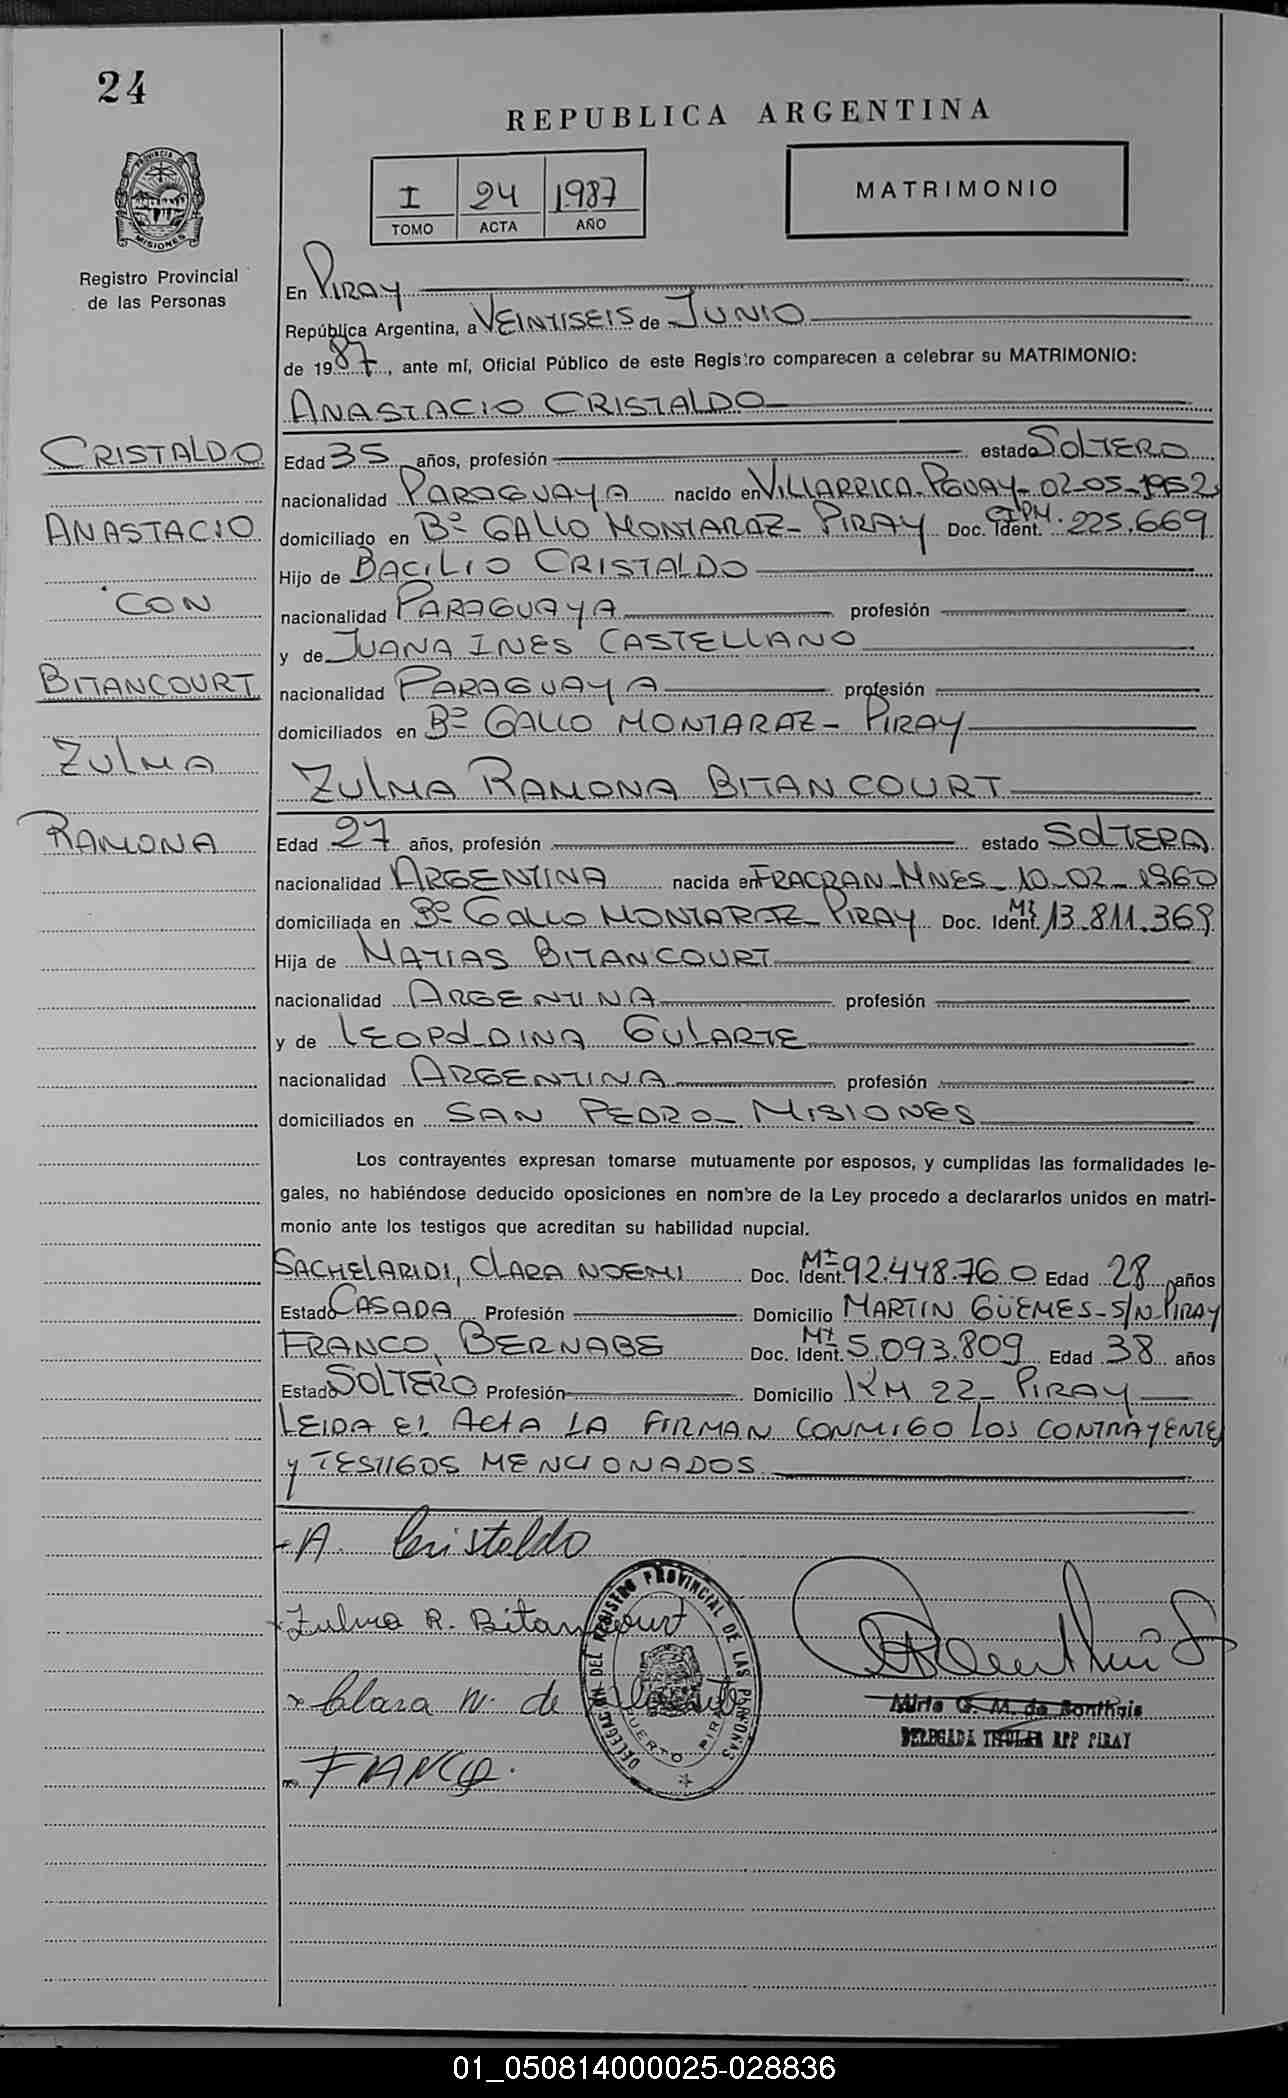 24
REPUBLICA ARGENTINA
PROVINCIA DE MISIONES
Registro Provincial
de las Personas
I 24 1987
TOMO ACTA AÑO
MATRIMONIO
En PIRAY
República Argentina, a VEINTISEIS de JUNIO
de 1987, ante mí, Oficial Público de este Registro comparecen a celebrar su MATRIMONIO:
ANASTACIO CRISTALDO
CRISTALDO
ANASTACIO
CON
BITANCOURT
ZULMA
RAMONA
Edad 35 años, profesión estado SOLTERO
nacionalidad PARAGUAYA nacido en VILLARRICA-PGUAY-02-05-1952
domiciliado en Bº GALLO MONTARAZ-PIRAY Doc. Ident. 225.669
Hijo de BACILIO CRISTALDO
nacionalidad PARAGUAYA profesión
y de JUANA INES CASTELLANO
nacionalidad PARAGUAYA profesión
domiciliados en Bº GALLO MONTARAZ- PIRAY
ZULMA RAMONA BITANCOURT
Edad 27 años, profesión estado SOLTERA
nacionalidad ARGENTINA nacida en FRACRAN-MNES-10-02-1960
domiciliada en Bº GALLO MONTARAZ-PIRAY Doc. Ident. MI 13.811.369
Hija de MATIAS BITANCOURT
nacionalidad ARGENTINA profesión
y de LEOPOLDINA GULARTE
nacionalidad ARGENTINA profesión
domiciliados en SAN PEDRO-MISIONES
Los contrayentes expresan tomarse mutuamente por esposos, y cumplidas las formalidades le-
gales, no habiéndose deducido oposiciones en nombre de la Ley procedo a declararlos unidos en matri-
monio ante los testigos que acreditan su habilidad nupcial.
SACHELARIDI, CLARA NOEMI Doc. Ident. MI 92.448.760 Edad 28 años
Estado CASADA Profesión Domicilio MARTIN GÜEMES-S/N-PIRAY
FRANCO, BERNABE Doc. Ident. MI 5.093.809 Edad 38 años
Estado SOLTERO Profesión Domicilio KM 22-PIRAY
LEIDA EL ACTA LA FIRMAN CONMIGO LOS CONTRAYENTES
y TESTIGOS MENCIONADOS
A. Cristaldo
Zulma R. Bitancourt
Clara N. de
FRANCO.
DELEGACION DEL REGISTRO PROVINCIAL DE LAS PERSONAS
PUERTO PIRAY
Mirta G. M. de Bonthuis
DELEGADA TITULAR RPP PIRAY
01_050814000025-028836